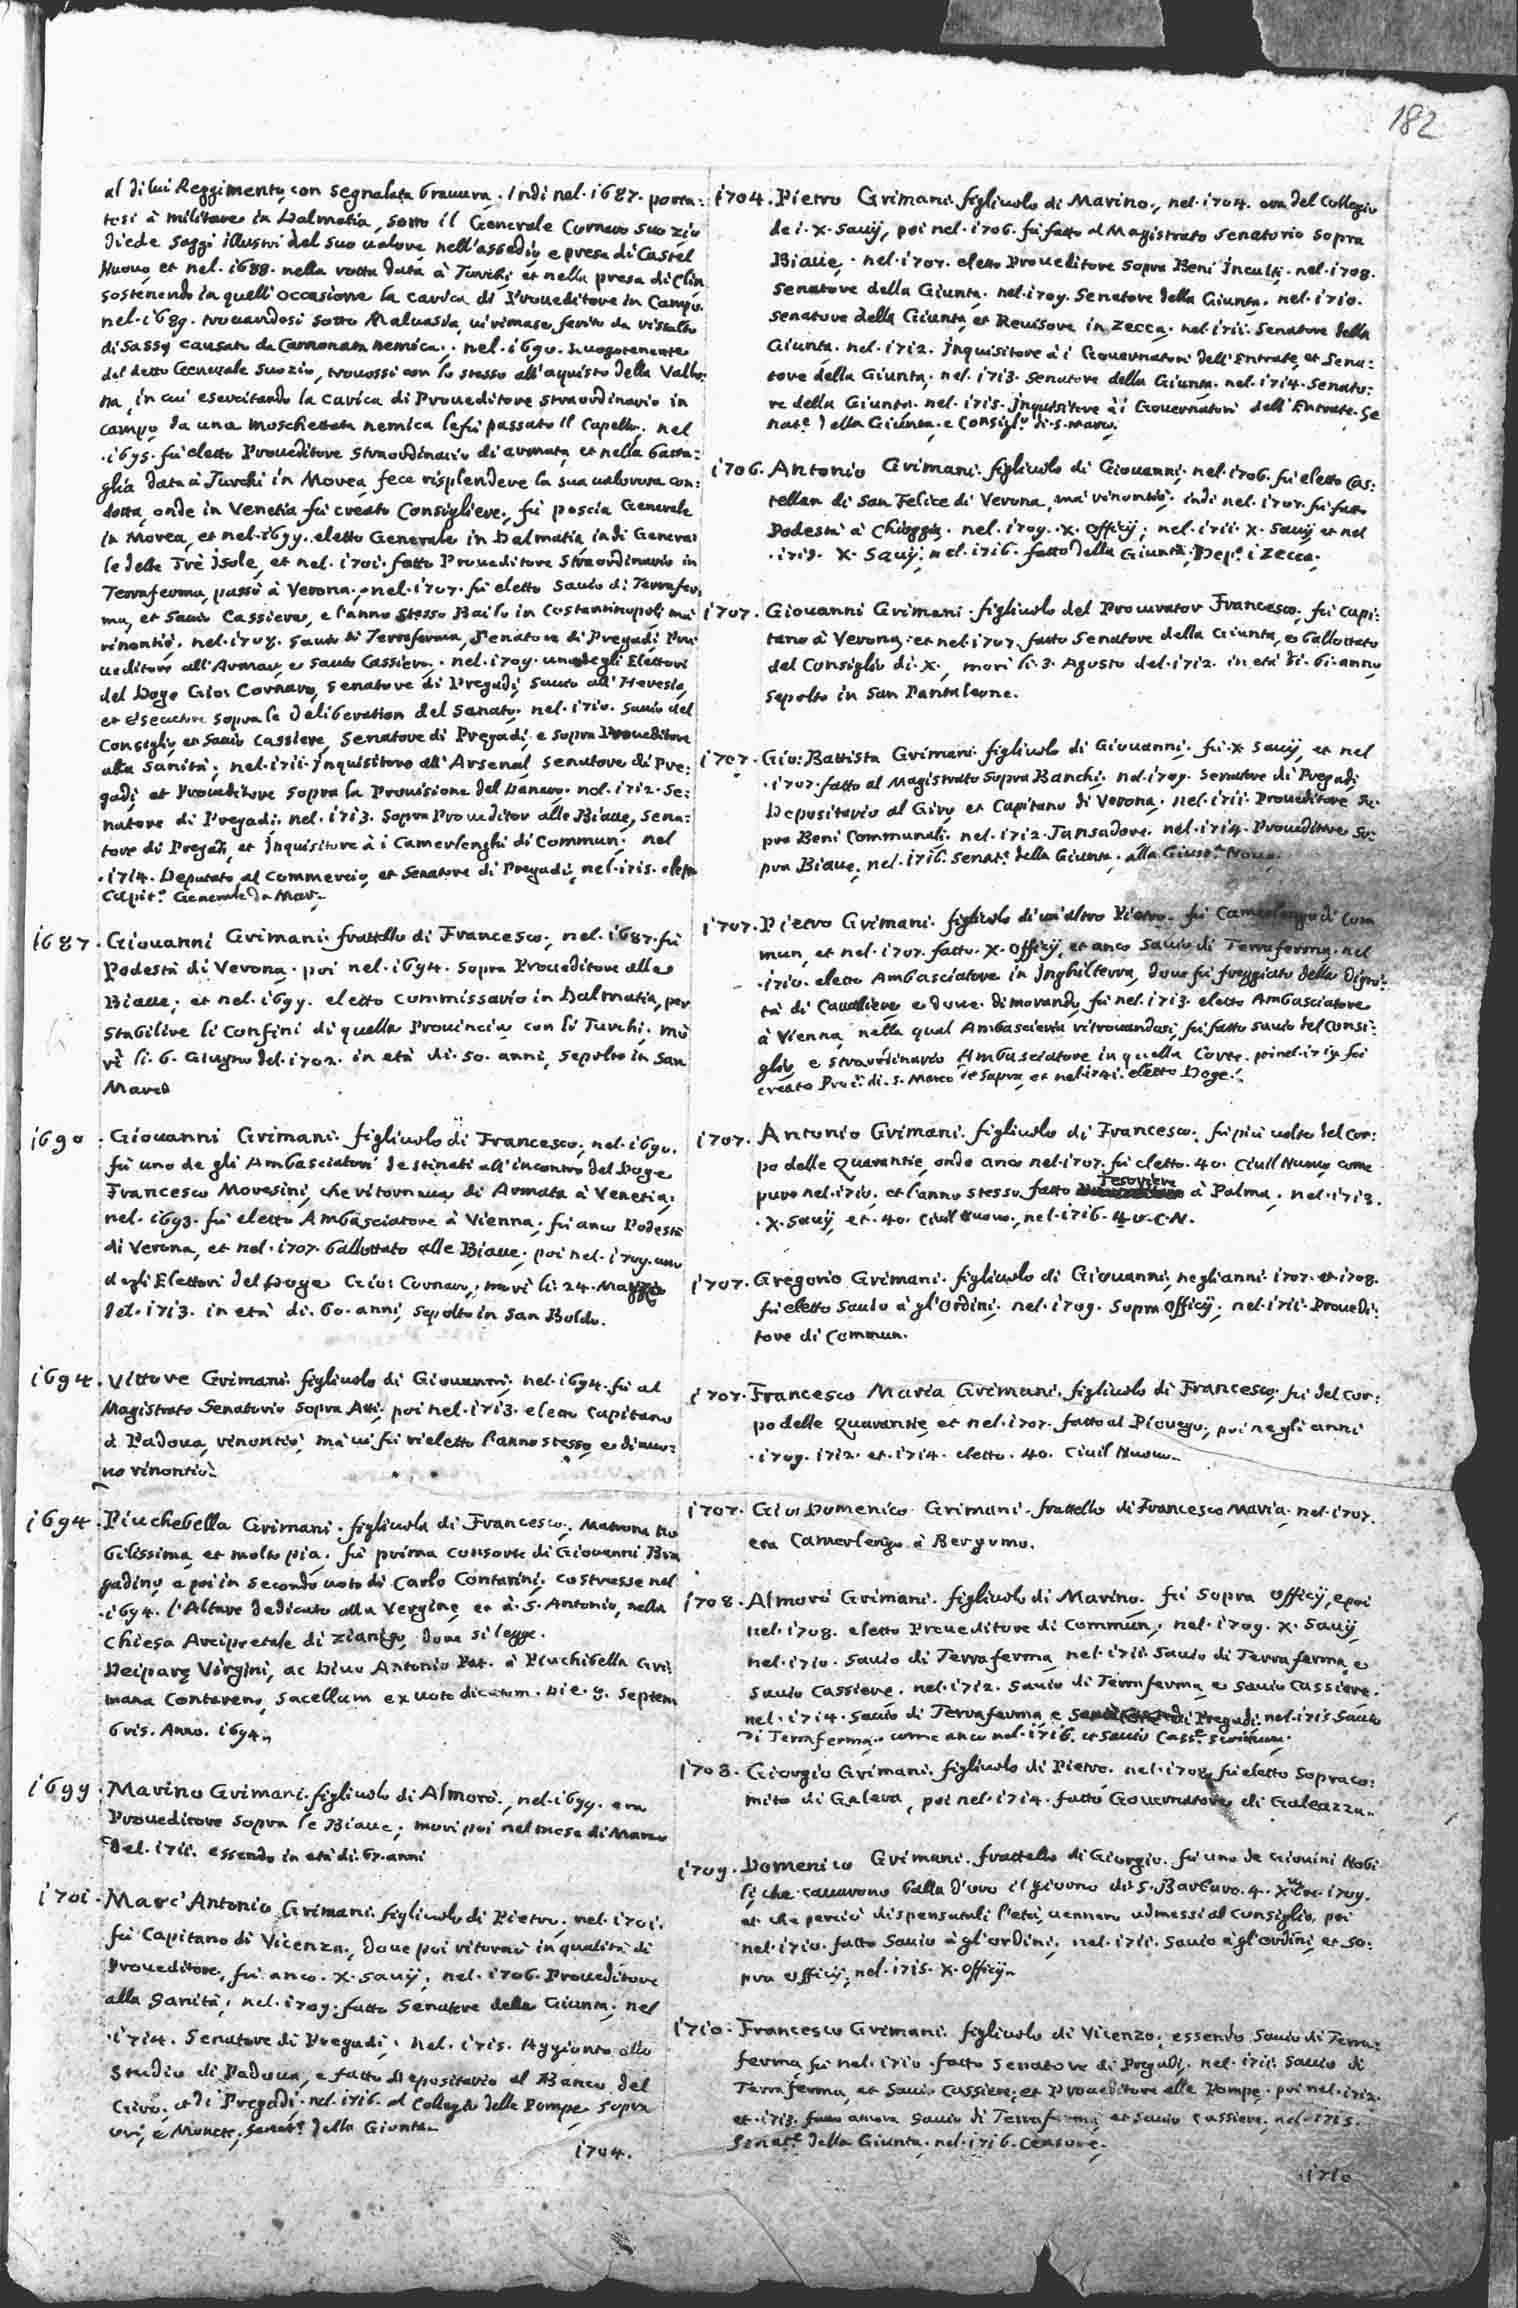 182
al di lui Reggimento, con segnalata brauura. Indi nel. 1687. porta:
tosi à militare in Dalmatia, sotto il Generale Cornaro suo zio
diede saggi illustri del suo ualore, nell'assedio, e presa di Castel
Nuouo, et nel. 1688. nella rotta data à Turchi, et nella presa di Clin
sostenendo in quell'occasione la carica di Proueditore in Campo.
nel. 1689. trouandosi sotto Maluasia, ui rimase ferito da
di sassi causato da Cannonata nemica. nel. 1690. Luogotenente
del detto Generale suo zio, trouossi con lo stesso all'aquisto della Vallo:
na, in cui esercitando la carica di Proueditore straordinario in
campo, da una moschettata nemica le fù passato il Capello. nel
.1695. fù eletto Proueditore straordinario di armata, et nella batta:
glia data à Turchi in Morea, fece risplendere la sua ualorosa con:
dotta, onde in Venetia fù creato Consigliere, fù poscia Generale
in Morea, et nel. 1699. eletto Generale in Dalmatia, indi Genera:
le delle Trè Isole, et nel. 1701. fatto Proueditore straordinario in
Terraferma, passò à Verona. nel. 1707. fù eletto Sauio di Terrafer:
ma, et Sauio Cassiere, e l'anno stesso Bailo in Costantinopoli, mà
rinontiò. nel. 1708. Sauio di Terraferma, Senatore di Pregadi, Pro:
ueditore all'Armar, e Sauio Cassiero. nel. 1709. uno degli Elettori
del Doge Gio: Cornaro, Senatore di Pregadi, Sauio all'Heresia,
et Esecutore sopra le deliberation del Senato. nel. 1710. Sauio del
Consiglio, et Sauio Cassiere, Senatore di Pregadi, e sopra Proueditore
alla Sanità; nel. 1711. Inquisitore all'Arsenal, Senatore di Pre:
gadi, et Proueditore sopra la Prouisione del Danaro. nel. 1712. Se:
natore di Pregadi. nel. 1713. Sopra Proueditor alle Biaue, Sena:
tore di Pregadi, et Inquisitore à i Camerlenghi di Commun. nel
.1714. Deputato al Commercio, et Senatore di Pregadi, nel. 1715. eletto
Capit.º Generale da Mar.
1687. Giouanni Grimani. frattello di Francesco, nel. 1687. fù
Podestà di Verona. poi nel. 1694. sopra Proueditore alle
Biaue; et nel. 1699. eletto Commissario in Dalmatia, per
stabilire li Confini di quella Prouincia con li Turchi. mo
rì li. 6. Giugno del. 1702. in età di. 50. anni, sepolto in San
Marco
1690. Giouanni Grimani. figliuolo di Francesco, nel. 1690.
fù uno de gli Ambasciatori destinati all'incontro del Doge
Francesco Moresini, che ritornaua di Armata à Venetia;
nel. 1693. fù eletto Ambasciatore à Vienna; fù anco Podestà
di Verona, et nel. 1707. ballottato alle Biaue. poi nel. 1709. uno
degli Elettori del Doge Gio: Cornaro; morì li. 24. Maggio
del. 1713. in età di. 60. anni, sepolto in San Boldo.
1694. Vittore Grimani. figliuolo di Giouanni; nel. 1694. fù al
Magistrato Senatorio sopra Atti, poi nel. 1713. eletto Capitano
à Padoua, rinontiò, mà ui fù rieletto l'anno stesso, e di nuo:
uo rinontiò.
1694. Piuchebella Grimani. figliuola di Francesco, Matrona No
bilissima, et molto pia, fù prima consorte di Giouanni Bra
gadino, e poi in secondo uoto di Carlo Contarini; costrusse nel
.1694. l'Altare dedicato alla Vergine, et à S. Antonio, nella
Chiesa Arcipretale di Zianigo, doue si legge.
Deiparę Virgini, ac Diuo Antonio Pat. à Piuchibella Gri
mana Contareno, sacellum ex uoto dicatum. Die. 9. Septem
bris. Anno. 1694.
1699. Marino Grimani. figliuolo di Almorò, nel. 1699. era
Proueditore sopra le Biaue; morì poi nel mese di Marzo
del. 1711. essendo in età di. 67. anni
1701. Marc'Antonio Grimani. figliuolo di Pietro, nel. 1701.
fù Capitano di Vicenza, doue poi ritornò in qualità di
Proueditore, fù anco. X. Sauij, nel. 1706. Proueditore
alla Sanità; nel. 1709. fatto Senatore della Giunta; nel
.1714. Senatore di Pregadi; nel. 1715. Aggionto allo
Studio di Padoua, e fatto Depositario al Banco del
Giro, et di Pregadi. nel. 1716. al Collegio delle Pompe, sopra
ori, e Monete, Senat.e della Gionta.
1704.
1704. Pietro Grimani. figliuolo di Marino, nel. 1704. era del Collegio
de i. X. Sauij, poi nel. 1706. fù fatto al Magistrato senatorio sopra
Biaue. nel. 1707. eletto Proueditore sopra Beni Inculti. nel. 1708.
Senatore della Giunta. nel. 1709. Senatore della Giunta. nel. 1710.
Senatore della Giunta, et Reuisore in Zecca. nel. 1711. Senatore della
Giunta. nel. 1712. Inquisitore à i Gouernatori dell'Entrate, et Sena:
tore della Giunta; nel. 1713. Senatore della Giunta. nel. 1714. Senato:
re della Giunta. nel. 1715. Inquisitore à i Gouernatori dell'Entrate. Se
nat.e della Giunta, e Consigl.r di. S. Marco.
1706. Antonio Grimani. figliuolo di Giouanni; nel. 1706. fù eletto Cas:
tellan di San Felice di Verona, mà rinontiò; indi nel. 1707. fù fatto
Podestà à Chioggia. nel. 1709. X. Officij; nel. 1711. X. Sauij et nel
.1713. X. Sauij; nel. 1716. fatto della Giunta, Dep.º i Zecca.
1707. Giouanni Grimani. figliuolo del Procurator Francesco, fù Capi:
tano à Verona, et nel. 1707. fatto Senatore della Giunta, e ballottato
del Consiglio di. X., morì li. 3. Agosto del. 1712. in età di. 61. anno,
sepolto in San Pantaleone.
1707. Gio: Battista Grimani. figliuolo di Giouanni. fù. X. Sauij, et nel
.1707. fatto al Magistrato sopra Banchi; nel. 1709. Senatore di Pregadi,
Depositario al Giro, et Capitano di Verona. nel. 1711. Proueditore so:
pra Beni Communali. nel. 1712. Tansadore. nel. 1714. Proueditore so:
pra Biaue, nel. 1716. Senat.e della Giunta.
1707. Pietro Grimani. figliuolo di un'altro Pietro. fù Camerlengo di Com
mun, et nel. 1707. fatto. X. Officij, et anco Sauio di Terraferma. nel
.1710. eletto Ambasciatore in Inghilterra, doue fù freggiato della digni:
tà di Caualliere, e doue dimorando, fù nel. 1713. eletto Ambasciatore
à Vienna, nella qual Ambascieria ritrouandosi, fù fatto Sauio del Consi:
glio, e straordinario Ambasciatore in quella Corte. poi nel. 1719. fù
creato Proc.r di. S. Marco de Supra, et nel. 1741. eletto Doge.
1707. Antonio Grimani. figliuolo di Francesco, fù più uolte del Cor:
po delle Quarantie, onde anco nel. 1707. fù eletto. 40. Ciuil Nuouo, come
pure nel. 1710. et l'anno stesso fatto Tesoriere à Palma. nel. 1713.
. X. Sauij, et. 40. Ciuil Nuouo, nel. 1716. 40. C. N.
1707. Gregorio Grimani. figliuolo di Giouanni, negli anni. 1707. et. 1708.
fù eletto Sauio à gl'Ordini; nel. 1709. Sopra Officij; nel. 1711. Prouedi:
tore di Commun.
1707. Francesco Maria Grimani. figliuolo di Francesco, fù del Cor:
po delle Quarantie, et nel. 1707. fatto al Piouego, poi negli anni
.1709. 1712. et. 1714. eletto. 40. Ciuil Nuouo.
1707. Gio: Domenico Grimani. frattello di Francesco Maria, nel. 1707.
era Camerlengo à Bergomo.
1708. Almorò Grimani. figliuolo di Marino. fù Sopra Officij, e poi
nel. 1708. eletto Proueditore di Commun. nel. 1709. X. Sauij,
nel. 1710. Sauio di Terraferma, nel. 1711. Sauio di Terraferma, e
Sauio Cassiere. nel. 1712. Sauio di Terraferma, e Sauio Cassiere.
nel. 1714. Sauio di Terraferma, e di Pregadi. nel. 1715. Sauio
di Terraferma. come anco nel. 1716. et Sauio Cass.e
1708. Giorgio Grimani. figliuolo di Pietro. nel. 1708. fù eletto Sopraco:
mito di Galera, poi nel. 1714. fatto Gouernatore di Galeazza.
1709. Domenico Grimani. frattello di Giorgio. fù uno de Giouini Nobi
li, che cauarono balla d'oro il giorno di S. Barbara. 4. Xbre. 1709.
et che perciò dispensatali l'età, uennero admessi al Consiglio. poi
nel. 1710. fatto Sauio à gl'Ordini; nel. 1711. Sauio à gl'Ordini, et So:
pra Officij; nel. 1715. X. Officij.
1710. Francesco Grimani. figliuolo di Vicenzo; essendo Sauio di Terra:
ferma, fù nel. 1710. fatto Senatore di Pregadi; nel. 1711. Sauio di
Terraferma, et Sauio Cassiere; et Proueditore alle Pompe. poi nel. 1712.
et. 1713. fatto ancora Sauio di Terraferma, et Sauio Cassiere. nel. 1715.
Senat.e della Giunta. nel. 1716. Censore.
.1710